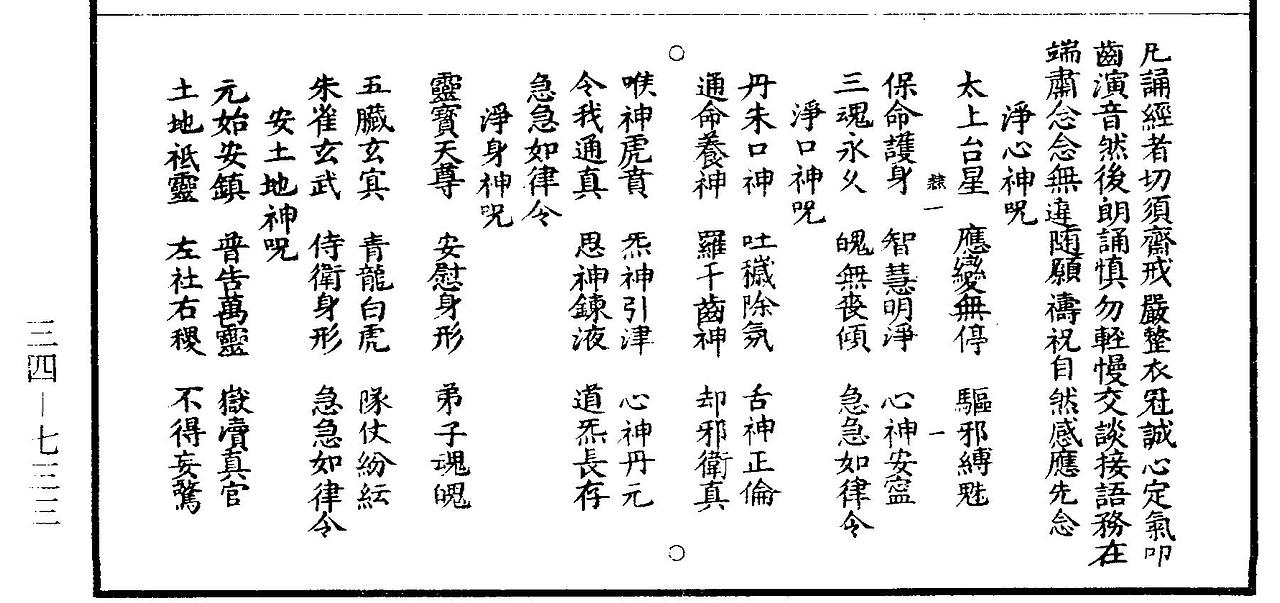 凡誦經者切須齋戒嚴整衣冠誠心定氣叩
齒演音然後朗誦慎勿輕慢交談接語務在
端肅念念無違随願禱祝自然感應先念
淨心神呪
太上台星 應變無停 驅邪縛魅
隸一 一
保命護身 智慧明淨 心神安寍
三魂永久 魄無丧傾 急急如律令
淨口神呪
丹朱口神 吐穢除氛 舌神正倫
通命養神 羅千齒神 却邪衛真
○ ○
喉神虎賁 炁神引津 心神丹元
令我通真 思神鍊液 道炁長存
急急如律令
淨身神呪
靈寳天尊 安慰身形 弟子魂魄
五臟玄㝠 青龍白虎 隊仗紛紜
朱雀玄武 侍衛身形 急急如律令
安土地神呪
元始安鎮 普告萬靈 嶽瀆真官
土地祗靈 左社右稷 不得妄驚
三四—七三三